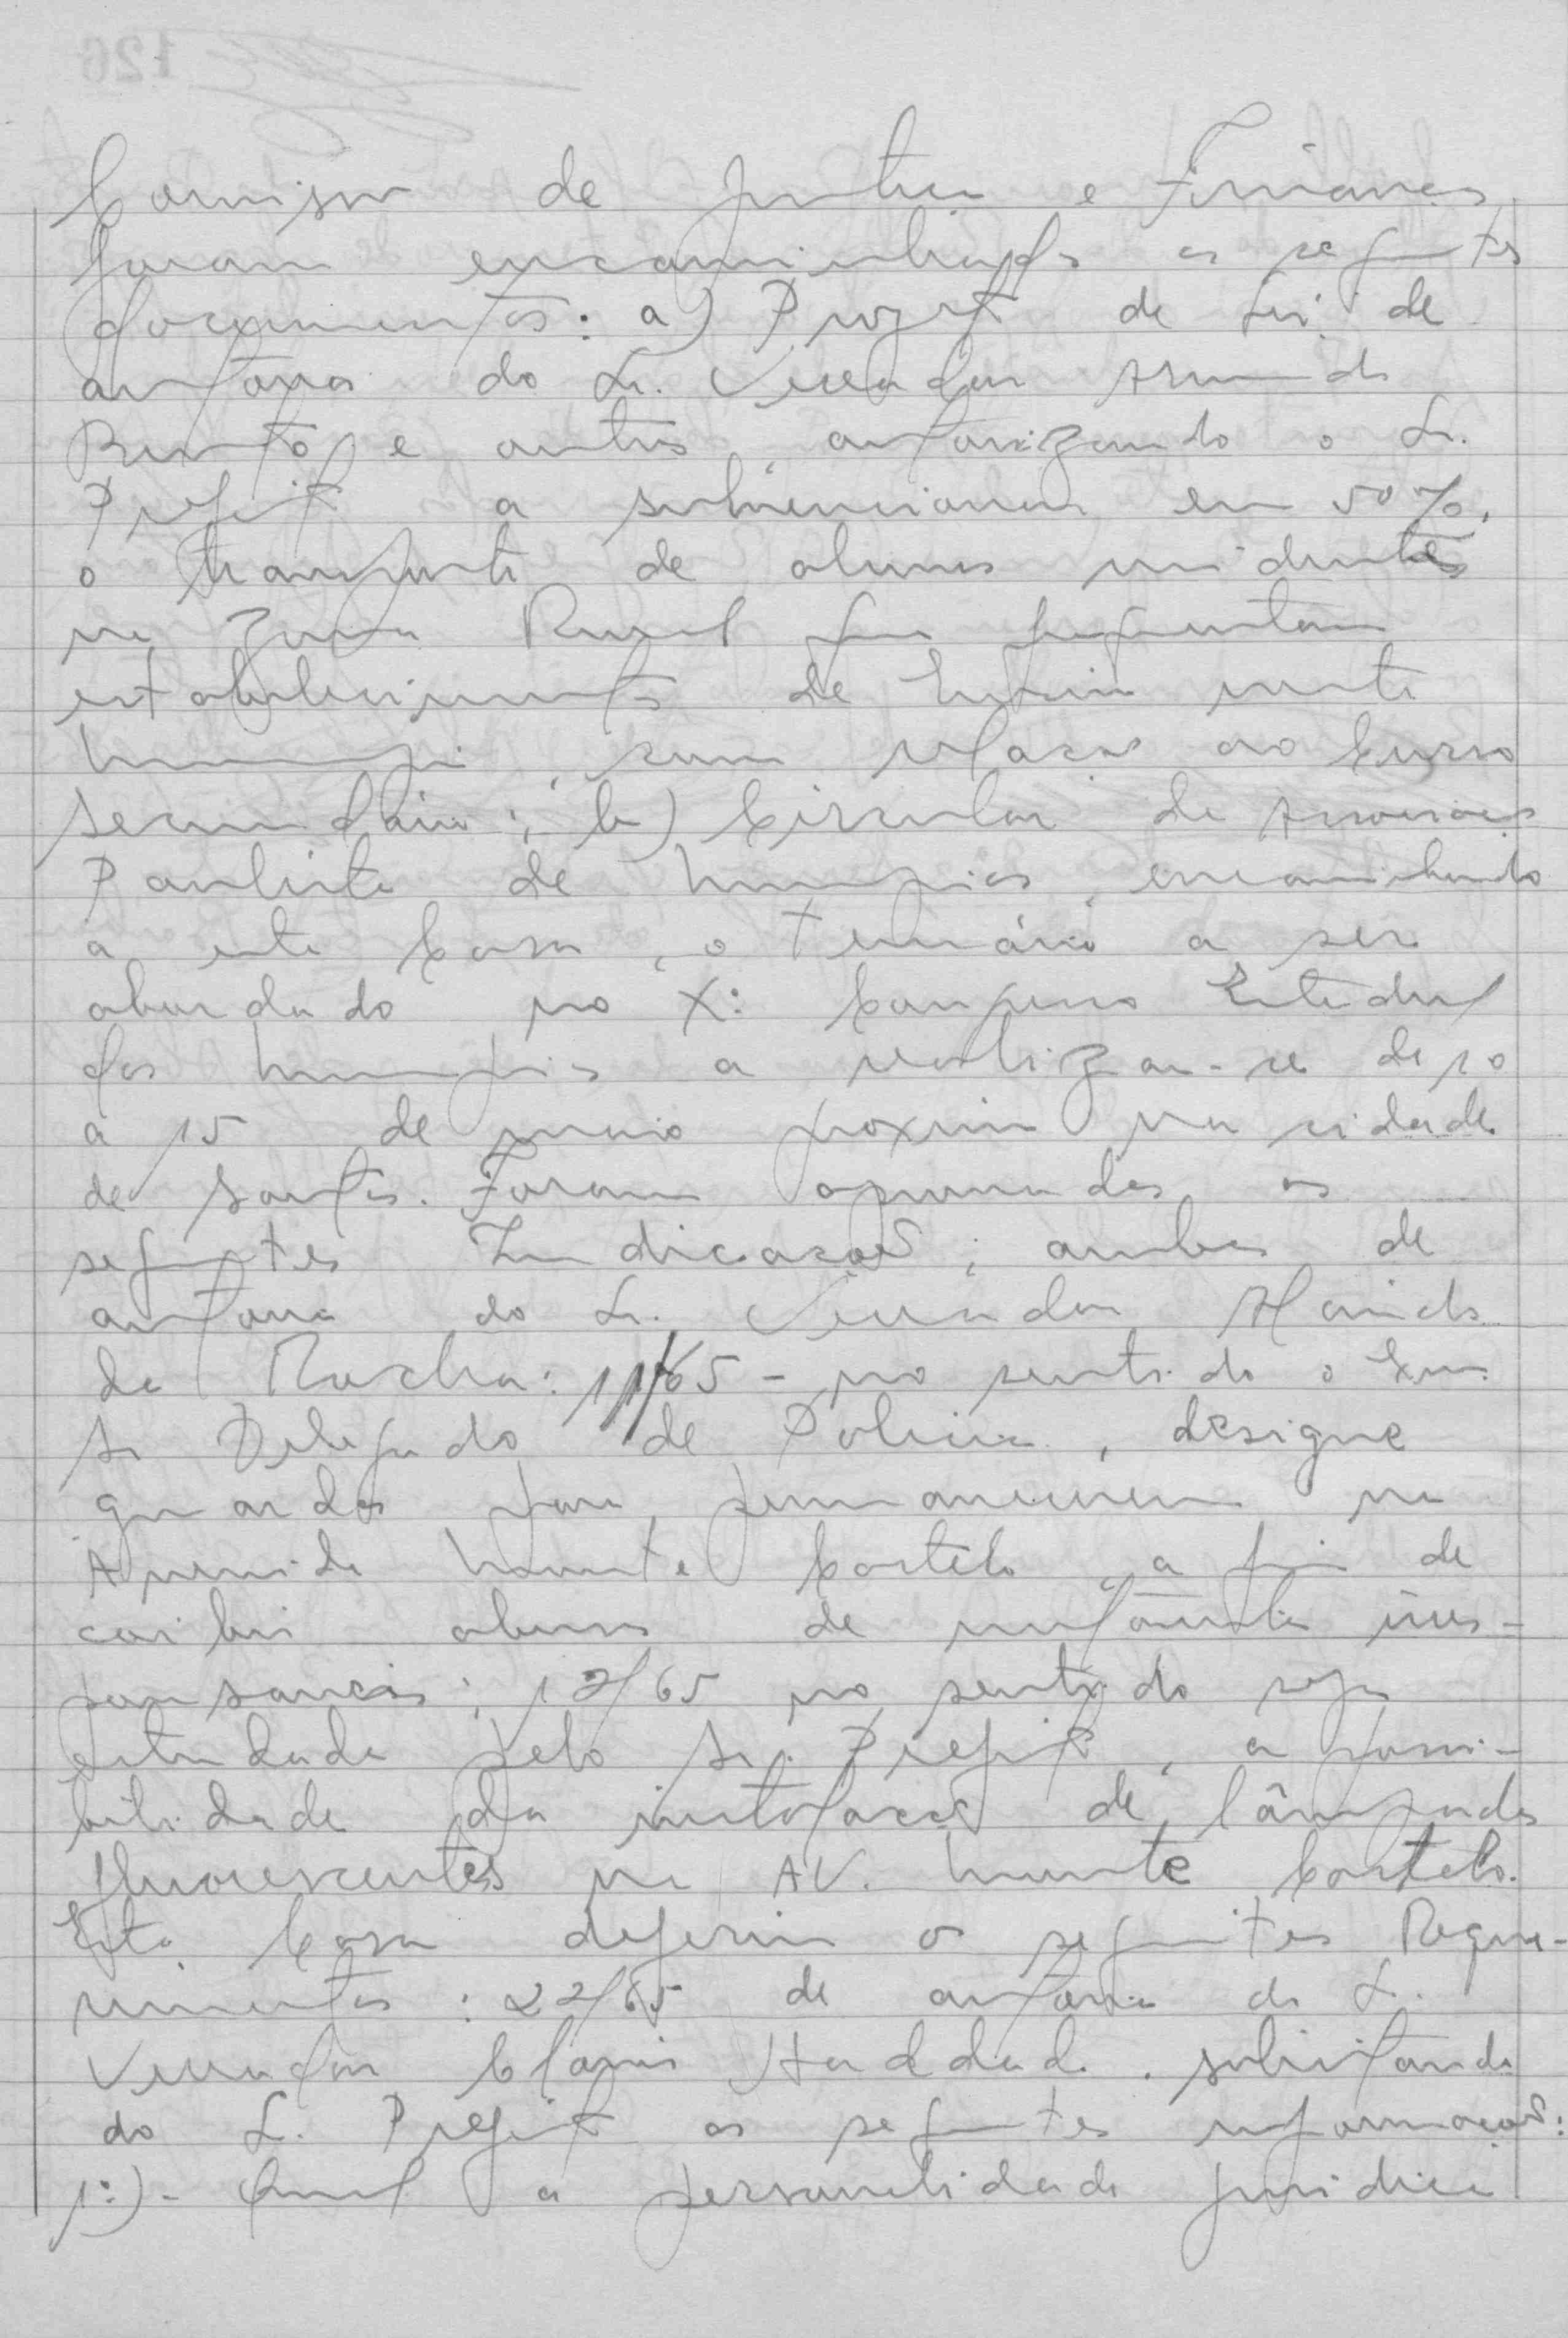 Comissão de Justiça e Finanças
foram encaminhados os seguintes
documentos: a) Projeto de Lei de
autoria do Sr. Vereador Armando
e outros, autorizando o Sr.
Prefeito a subvencionar em 50%,
o transporte de alunos residentes
na Zona Rural que frequentam
estabelecimentos de Ensino neste
Município, com relação ao Curso
secundário; b) Circular da Associação
Paulista de Municípios, encaminhando
a esta Casa, o temário a ser
abordado no Xº Congresso Estadual
dos Municípios a realizar-se de 10
a 15 de maio próximo na cidade
de Santos. Foram aprovadas as
seguintes Indicações; ambas de
autoria do Sr. Vereador
da Rocha: 11/65 - no sentido o Exmo.
Sr Delegado de Policia, designe
guardas para permanecerem na
Avenida Monte Castelo, a fim de
coibir abusos de motoristas irres-
ponsaveis; 12/65 no sentido seja
estudada pelo Sr. Prefeito, a possi-
bilidade da instalação de lâmpadas
fluorescentes na AV. Monte Castelo.
Esta Casa deferiu os seguintes Reque-
rimentos: 22/65 de autoria do Sr.
Vereador Clovis Haddad. solicitando
do Sr. Prefeito as seguintes informações:
1º)- Qual a personalidade juridica
126